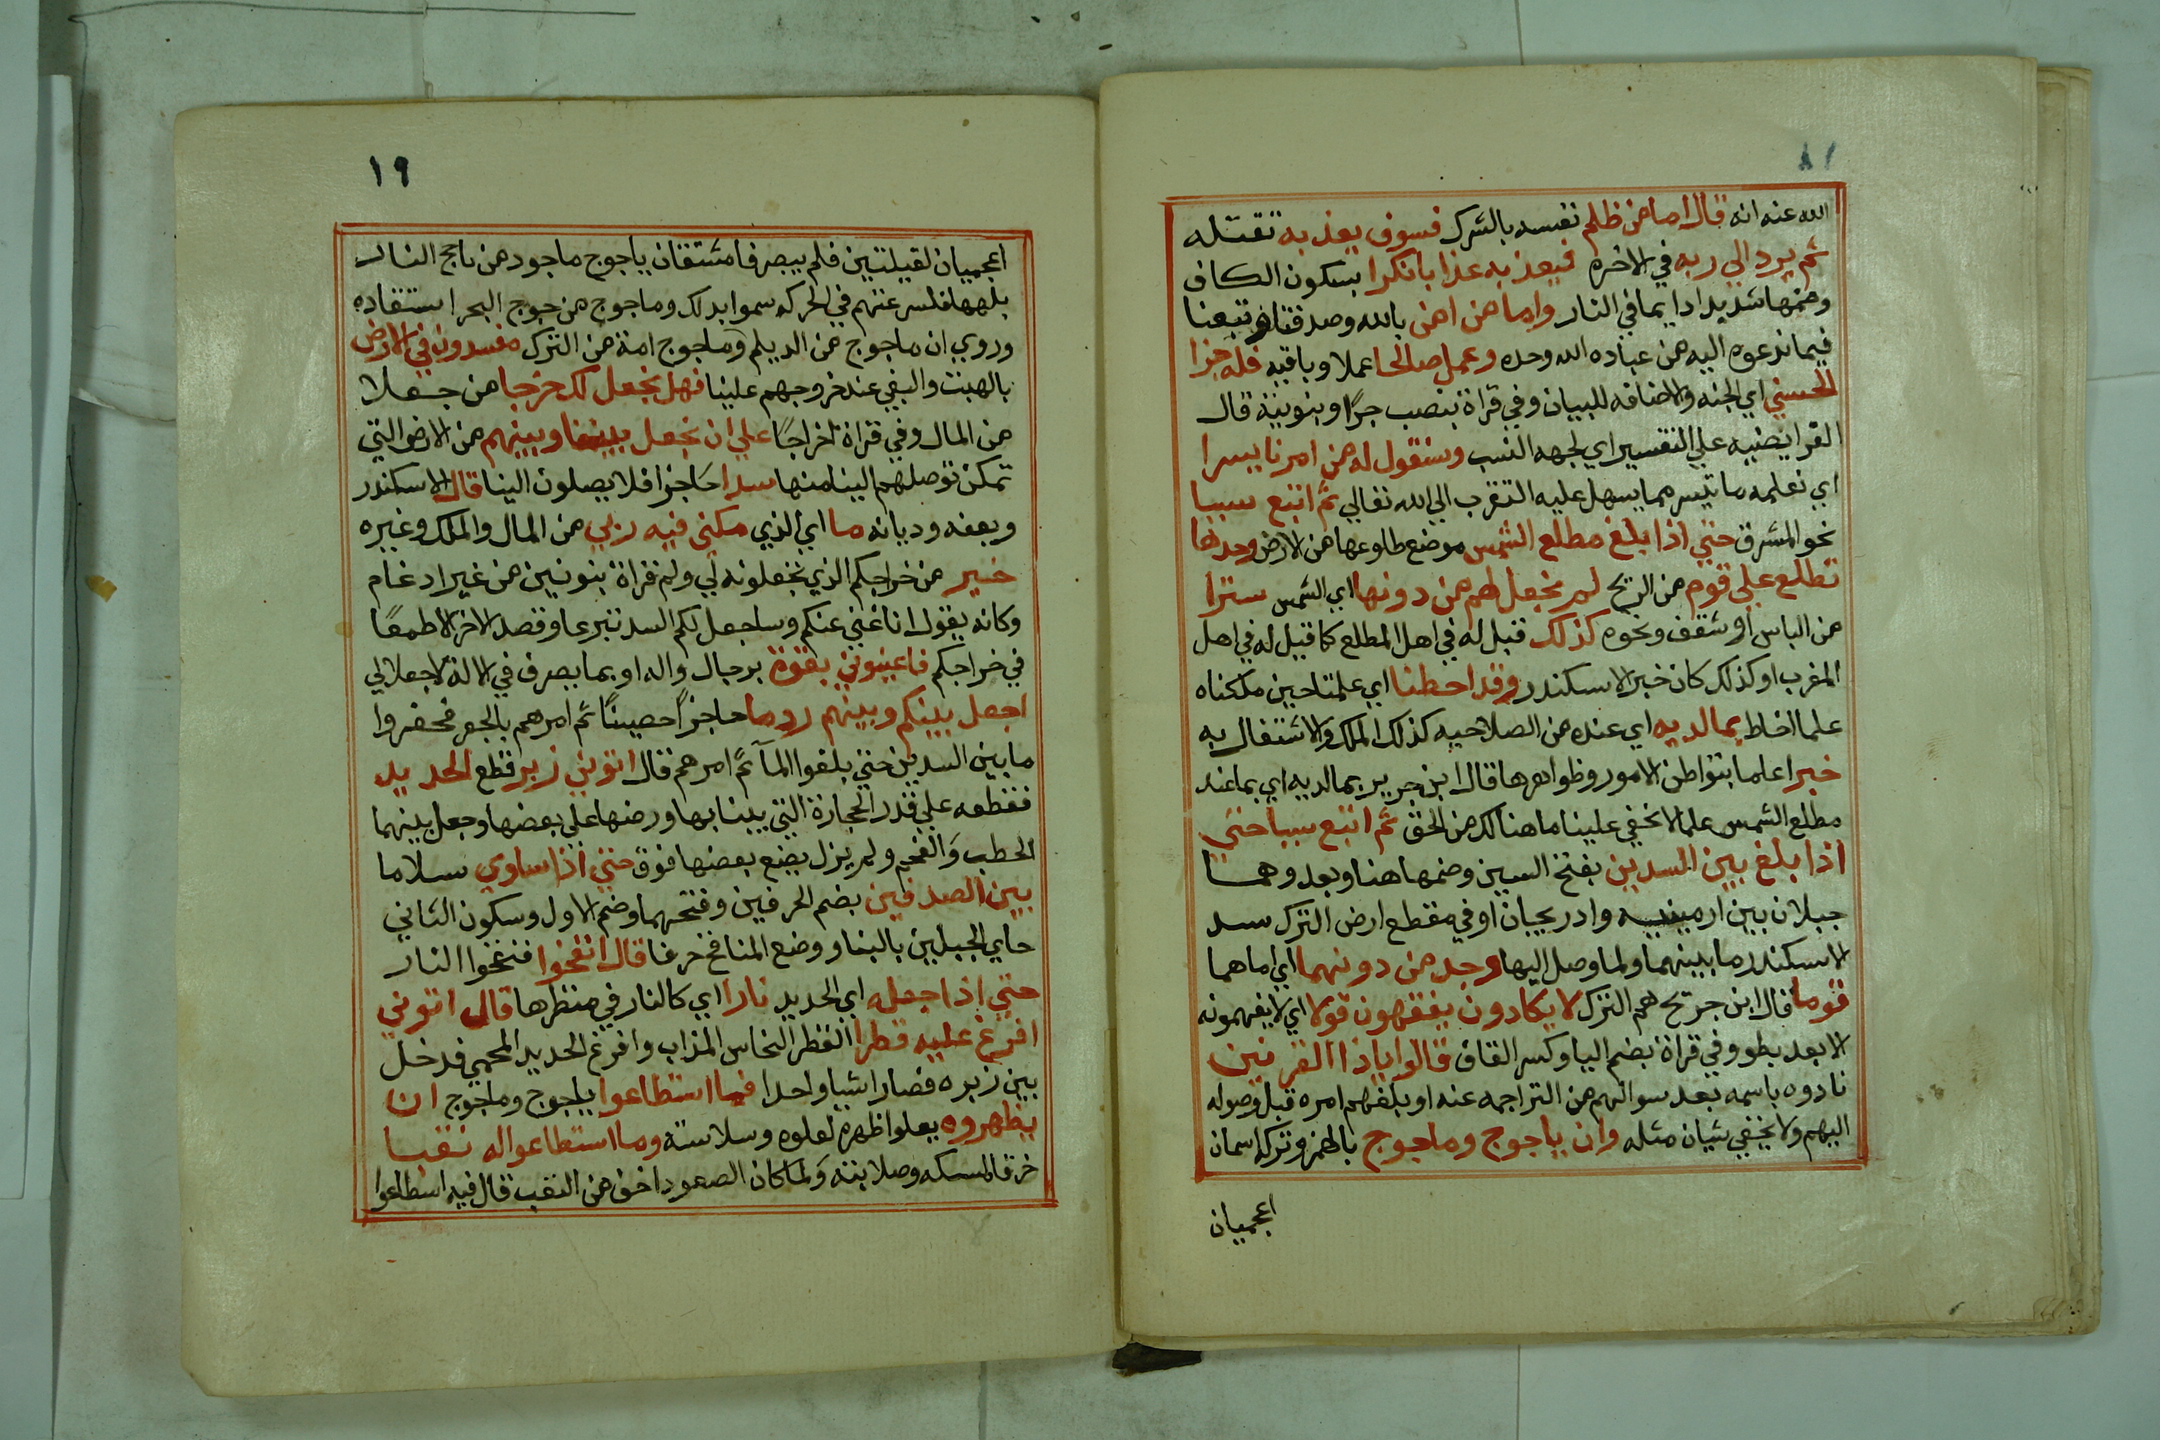 ١٨
الله عنه انه قال اما من ظلم نفسه بالشرك فسوف يعذبه نقتله
ثم يرد الي ربه في الاخره فيعذبه عذابا نكرا بسكون الكاف
وضمها شديدا دايما في النار واما من امن بالله وصدقنا وتبعنا
فيما ندعوه اليه من عباده الله وحده وعمل صالحا عملا وباقيه فله جزا
الحسني اي الجنه والاضافه للبيان وفي قراة بنصب جزًا وبنوينة قال
الفرا نصبه علي التفسير اي لجهه النسب وسنقول له من امرنا يسرا
اي نعلمه ما تيسر مما يسهل عليه التقرب الي الله تعالي ثم اتبع سببا
نحو المشرق حتي اذا بلغ مطلع الشمس موضع طلوعها من الارض وجدها
تطلع علي قوم من الزنج لم نجعل لهم من دونها اي الشمس سترا
من الباس او شقف ونحوه كذلك قبل له في اهل المطلع كما قيل له في اهل
المغرب او كذلك كان خبر الاسكندر وقد احطنا اي علمنا حين ملكناه
علما احاط بما لديه اي عنده من الصلاحيه كذلك الملك والاشتغال به
خبرا علما بتواطن الامور وظواهرها قال ابن جرير بما لديه اي بما عند
مطلع الشمس علما لا يخفي علينا ما هنالك من الخق ثم اتبع سببا حتي
اذا بلغ بين السدين بفتح السين وضمها هنا وبعد وهما
جبلان بين ارمينيه وادربيجان او في مقطع ارض الترك سد
الاسكندر ما بينهما ولما وصل اليها وجد من دونهما اي امامهما
قوما قال ابن جريج هم الترك لا يكادون يفقهون قولا اي لا يفهمونه
الا بعد بطو وفي قراة بضم اليا وكسر القاف قالوا يا ذا القرنين
نادوه باسمه بعد سوالهم من التراجمه عنه او بلغهم امره قبل وصوله
اليهم ولا يخفي شيان مثله وان ياجوج وماجوج بالهمز وتركه اسمان
اعجميان
١٩
اعجميان لقبيلتين فلم يبصرفا مشتقان ياجوج ماجود من ناجج النار
بلهبها فلسرعتهم في الحركه سموا بدلك وماجوج من جوج البحر استقاده
وروي ان ماجوج من الديلم وماجوج امة من الترك مفسدون في الارض
بالهبت والبغي عند خروجهم علينا فهل نجعل لك خرجا من جعلا
من المال وفي قراة اخراجًا علي ان نجعل بيننا وبينهم من الارض التي
تمكن توصلهم الينا منها سدا حَاجزا فلا يصلون الينا قال الاسكندر
وبعفه وديانه ما اي الذي مكني فيه ربي من المال والملك وغيره
خير من خراجكم الذي تجعلونه لي ولم قراة بنونين من غير ادغام
وكانه يقول انا غني عنكم وساجعل لكم السد تبرعا وقصد الاخر لا طمعًا
في خراجكم فاعينوني بقوة برجال والد او بما يصرف في الالة لا جعلا لي
اجعل بينكم وبينهم ردما حاجزًا حصينًا ثم امرهم بالجفر فحفروا
ما بين السدين حتي بلغوا المآ ثم امرهم قال اتوني زبر قطع الحديد
فقطعه علي قدر الحجارة التي يبنا بها ورضها علي بعضها وجعل بينهما
الحطب وَالفحم ولم يزل يضع بعضها فوق حتي اذا ساوي سلاما
بين الصدفين بضم الحرفين وفتحهما وضم الاول وسكون الثاني
حاي الجبلين بالبنا ووضع المنافخ خرغا قال انفخوا فنفخوا النار
حتي اذا جعله اي الحديد نارا اي كالنار في منظرها قال اتوني
افرغ عليه قطرا القطر النحاس المذاب وافرغ الحديد المحمي فدخل
بين زبره فصارا شيا واحدا فما استطاعوا ياجوج وماجوج ان
يظهروه يعلوا ظهره لعلوه وسلاسته وما استطاعوا له نقبا
خرقا لمسكه وصلابته وَلما كان الصعود اخف من النقب قال فيه اسطاعوا